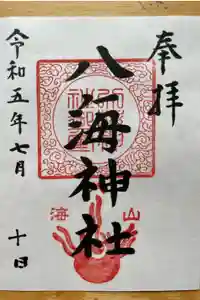 奉拝
八海神社
令和五年七月十日
山
海